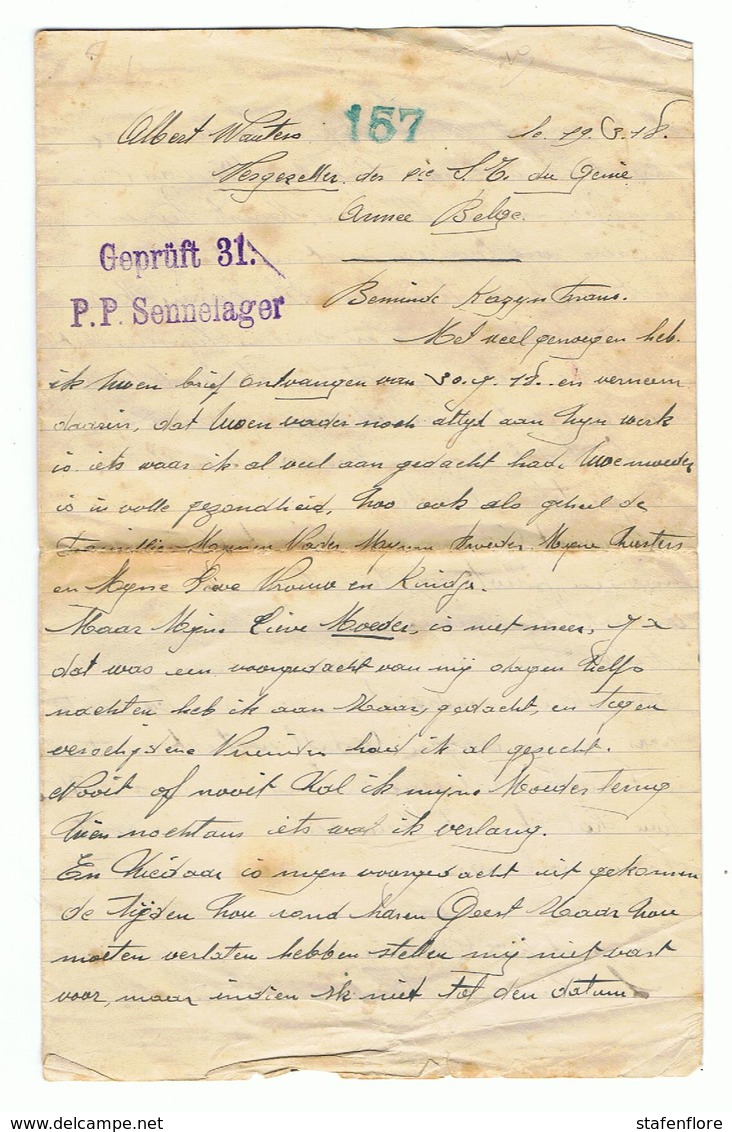 Albert Wauters 157 le 19.3.18.
Vergezeller der S. T. du Genie
Armee Belge.
Geprüft 31.
P.P. Sennelager
Beminde Kozyn Frans.
Met veel genoegen heb
ik Uwen brief ontvangen van 30.. 18. en verneem
daarin, dat Uwen vader noch altyd aan zyn werk
is iets waar ik al veel aan gedacht had. Uwe moeder
is in volle gezondheid, zoo ook als geheel de
Famillie Mynen Vader Mynen Broeder Myne Zusters
en Myne Lieve Vrouw en Kindje.
Maar Myne Lieve Moeder, is niet meer, Ja
dat was een voorgedacht van mij dagen zelfs
nachten heb ik aan Haar gedacht, en tegen
verschijdene Vrienden had ik al gezecht.
Nooit of nooit Zal ik mijne Moeder terug
Zien nochtans iets wat ik verlang.
En Ziedaar is mijn voorgedacht uit gekomen
de tijden hou rond haren Geest Haar zou
moeten verlaten hebben stellen mij niet vast
voor, maar indien ik niet tot den datum
stafenflore